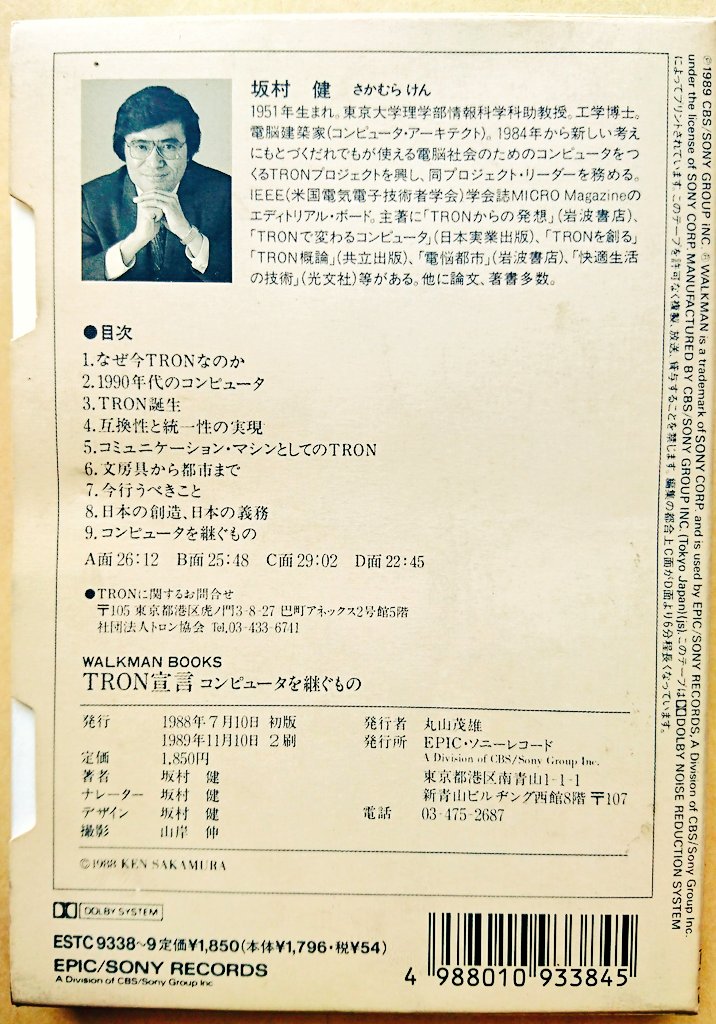 坂村 健 さかむら けん
1951年生まれ。東京大学理学部情報科学科助教授。工学博士。
電脳建築家(コンピュータ・アーキテクト)。1984年から新しい考え
にもとづくだれでもが使える電脳社会のためのコンピュータをつ
くるTRONプロジェクトを興し、同プロジェクト・リーダーを務める。
IEEE(米国電気電子技術者学会)学会誌MICRO Magazineの
エディトリアル・ボード。主著に「TRONからの発想」(岩波書店)、
「TRONで変わるコンピュータ」(日本実業出版)、「TRONを創る」
「TRON概論」(共立出版)、「電脳都市」(岩波書店)、「快適生活
の技術」(光文社)等がある。他に論文、著書多数。
●目次
1.なぜ今TRONなのか
2.1990年代のコンピュータ
3.TRON誕生
4.互換性と統一性の実現
5.コミュニケーション・マシンとしてのTRON
6.文房具から都市まで
7.今行うべきこと
8.日本の創造、日本の義務
9.コンピュータを継ぐもの
A面26:12 B面25:48 C面29:02 D面22:45
●TRONに関するお問合せ
〒105 東京都港区虎ノ門3-8-27 巴町アネックス2号館5階
社団法人トロン協会 Tel.03-433-6741
WALKMAN BOOKS
TRON宣言 コンピュータを継ぐもの
発行 1988年7月10日 初版
1989年11月10日 2刷
定価 1,850円
著者 坂村 健
ナレーター 坂村 健
デザイン 坂村 健
撮影 山岸 伸
発行者 丸山茂雄
発行所 EPIC・ソニーレコード
A Division of CBS/Sony Group Inc.
東京都港区南青山1-1-1
新青山ビルヂング西館8階 〒107
電話 03-475-2687
©1988 KEN SAKAMURA
DOLBY SYSTEM
ESTC 9338~9 定価¥1,850(本体¥1,796・税¥54)
EPIC/SONY RECORDS
A Division of CBS/Sony Group Inc
4 988010 933845
℗1989 CBS/SONY GROUP INC. ® WALKMAN is a trademark of SONY CORP. and is used by EPIC/SONY RECORDS, A Division of CBS/Sony Group Inc.
under the license of SONY CORP. MANUFACTURED BY CBS/SONY GROUP INC. (Tokyo Japan)(js).このテープは DOLBY NOISE REDUCTION SYSTEM
によってプリントされています。このテープを許可なく複製、放送、貸与することを禁じます。編集の都合上C面がD面より6分程長くなっています。